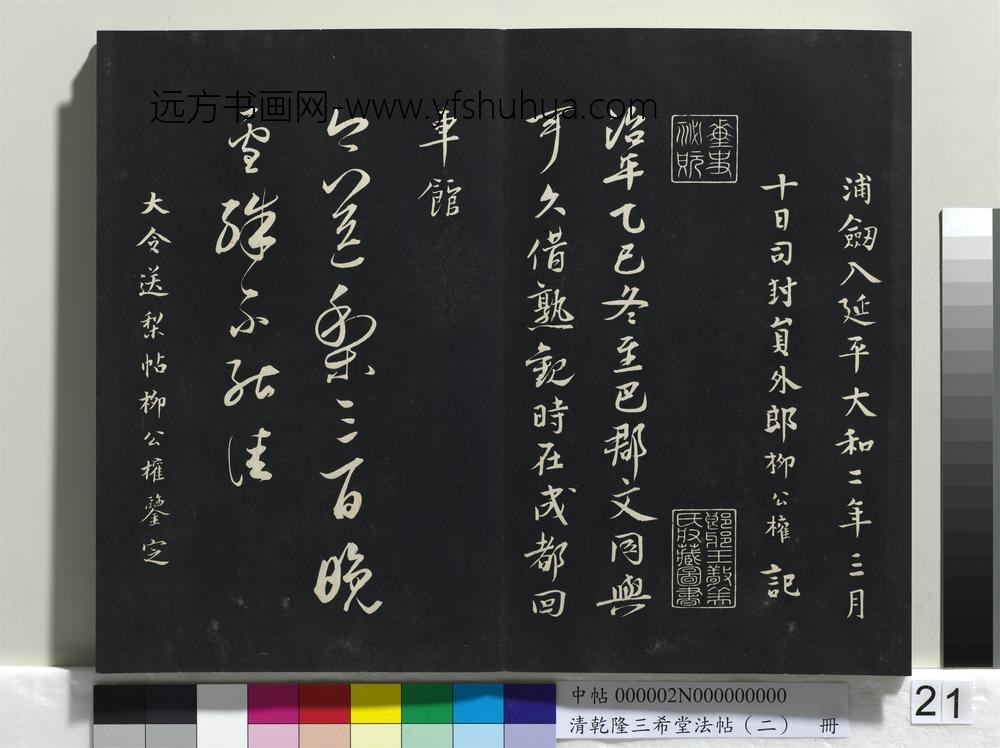 浦劒入延平大和二年三月
十日司封員外郎柳公權記
瑯琊王敬美
氏收藏圖書
治平乙巳冬至巴郡文同與
可久借熟觀時在成都回
車館
今送梨三百晚
雪殊不能佳
大令送梨帖柳公權鑒定
远方书画网-www.yfshuhua.com
中帖 000002N000000000
清乾隆三希堂法帖（二） 冊
21